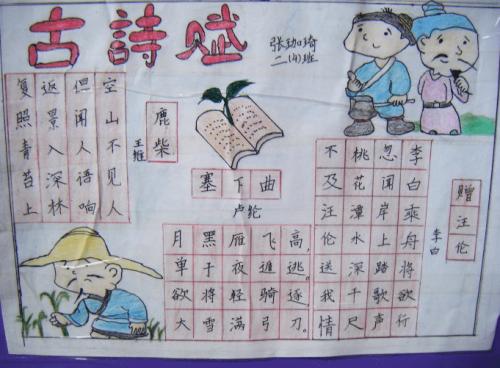 古詩赋
张珈琦
二(四)班
鹿柴
王维
空山不见人
但闻人语响
返景入深林
复照青苔上
塞下曲
卢纶
月黑雁飞高,
单于夜遁逃。
欲将轻骑逐
大雪满弓刀。
赠汪伦
李白
李白乘舟将欲行
忽闻岸上踏歌声
桃花潭水深千尺
不及汪伦送我情